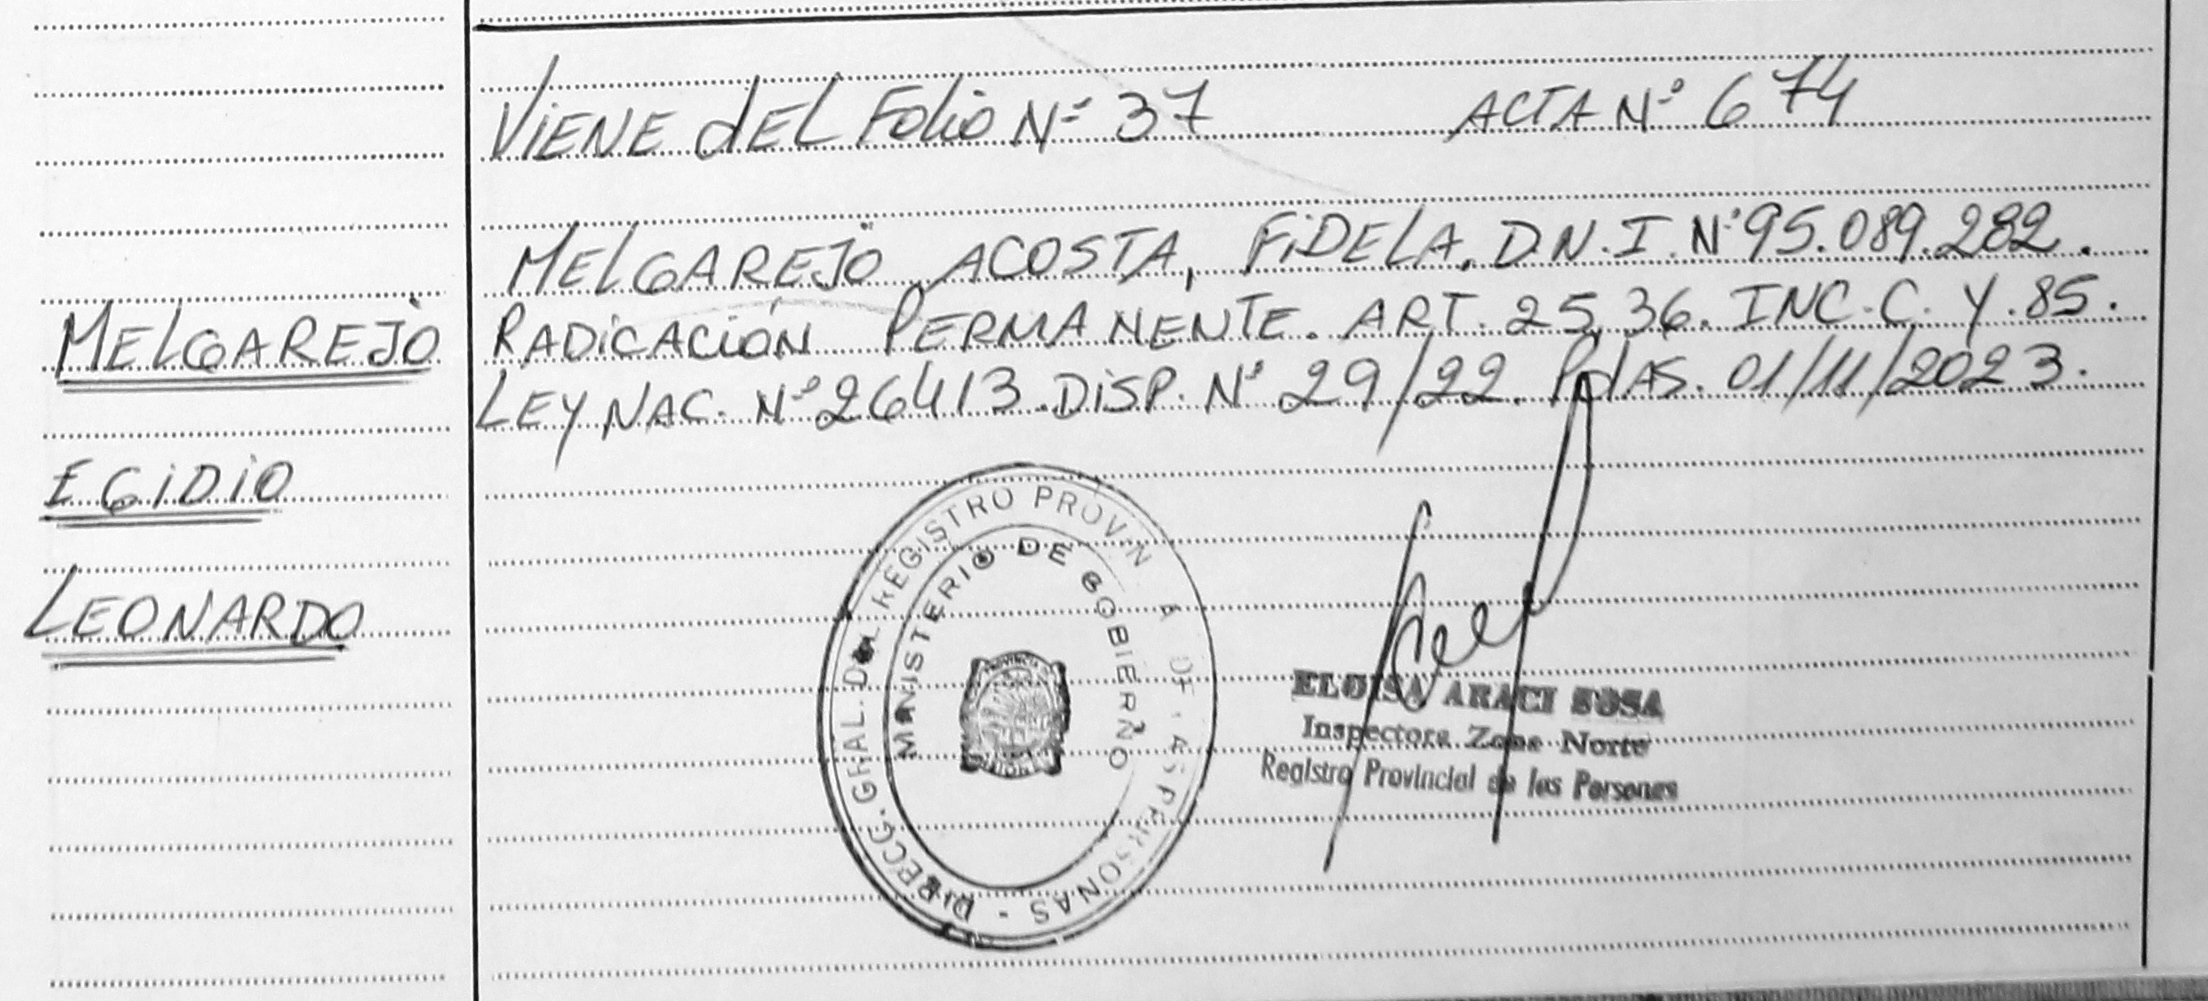 MELGAREJO
EGIDIO
LEONARDO
VIENE dEL Folio Nº 37 ACTA Nº 674
MELGAREJO ACOSTA, FIDELA. D.N.I. Nº 95.089.282.
RADICACIÓN PERMANENTE. ART. 25, 36. INC. C. Y. 85.
LEY NAC. Nº 26413. DISP. Nº 29/22. PdAS. 01/11/2023.
DIRECC. GRAL. DEL REGISTRO PROVIN A DE LAS PERSONAS -
MINISTERIO DE GOBIERNO
PROVINCIA
ELOISA ARACI SOSA
Inspectora Zona Norte
Registro Provincial de las Personas